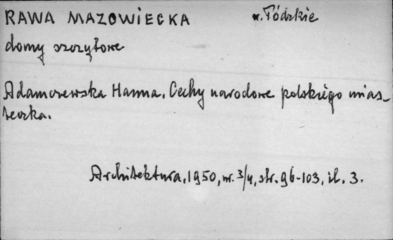 RAWA MAZOWIECKA w. Łódzkie
domy szczytowe
Adamczewska Hanna. Cechy narodowe polskiego mias-
teczka.
Architektura, 1950, nr. 3/4, str. 96-103, il. 3.